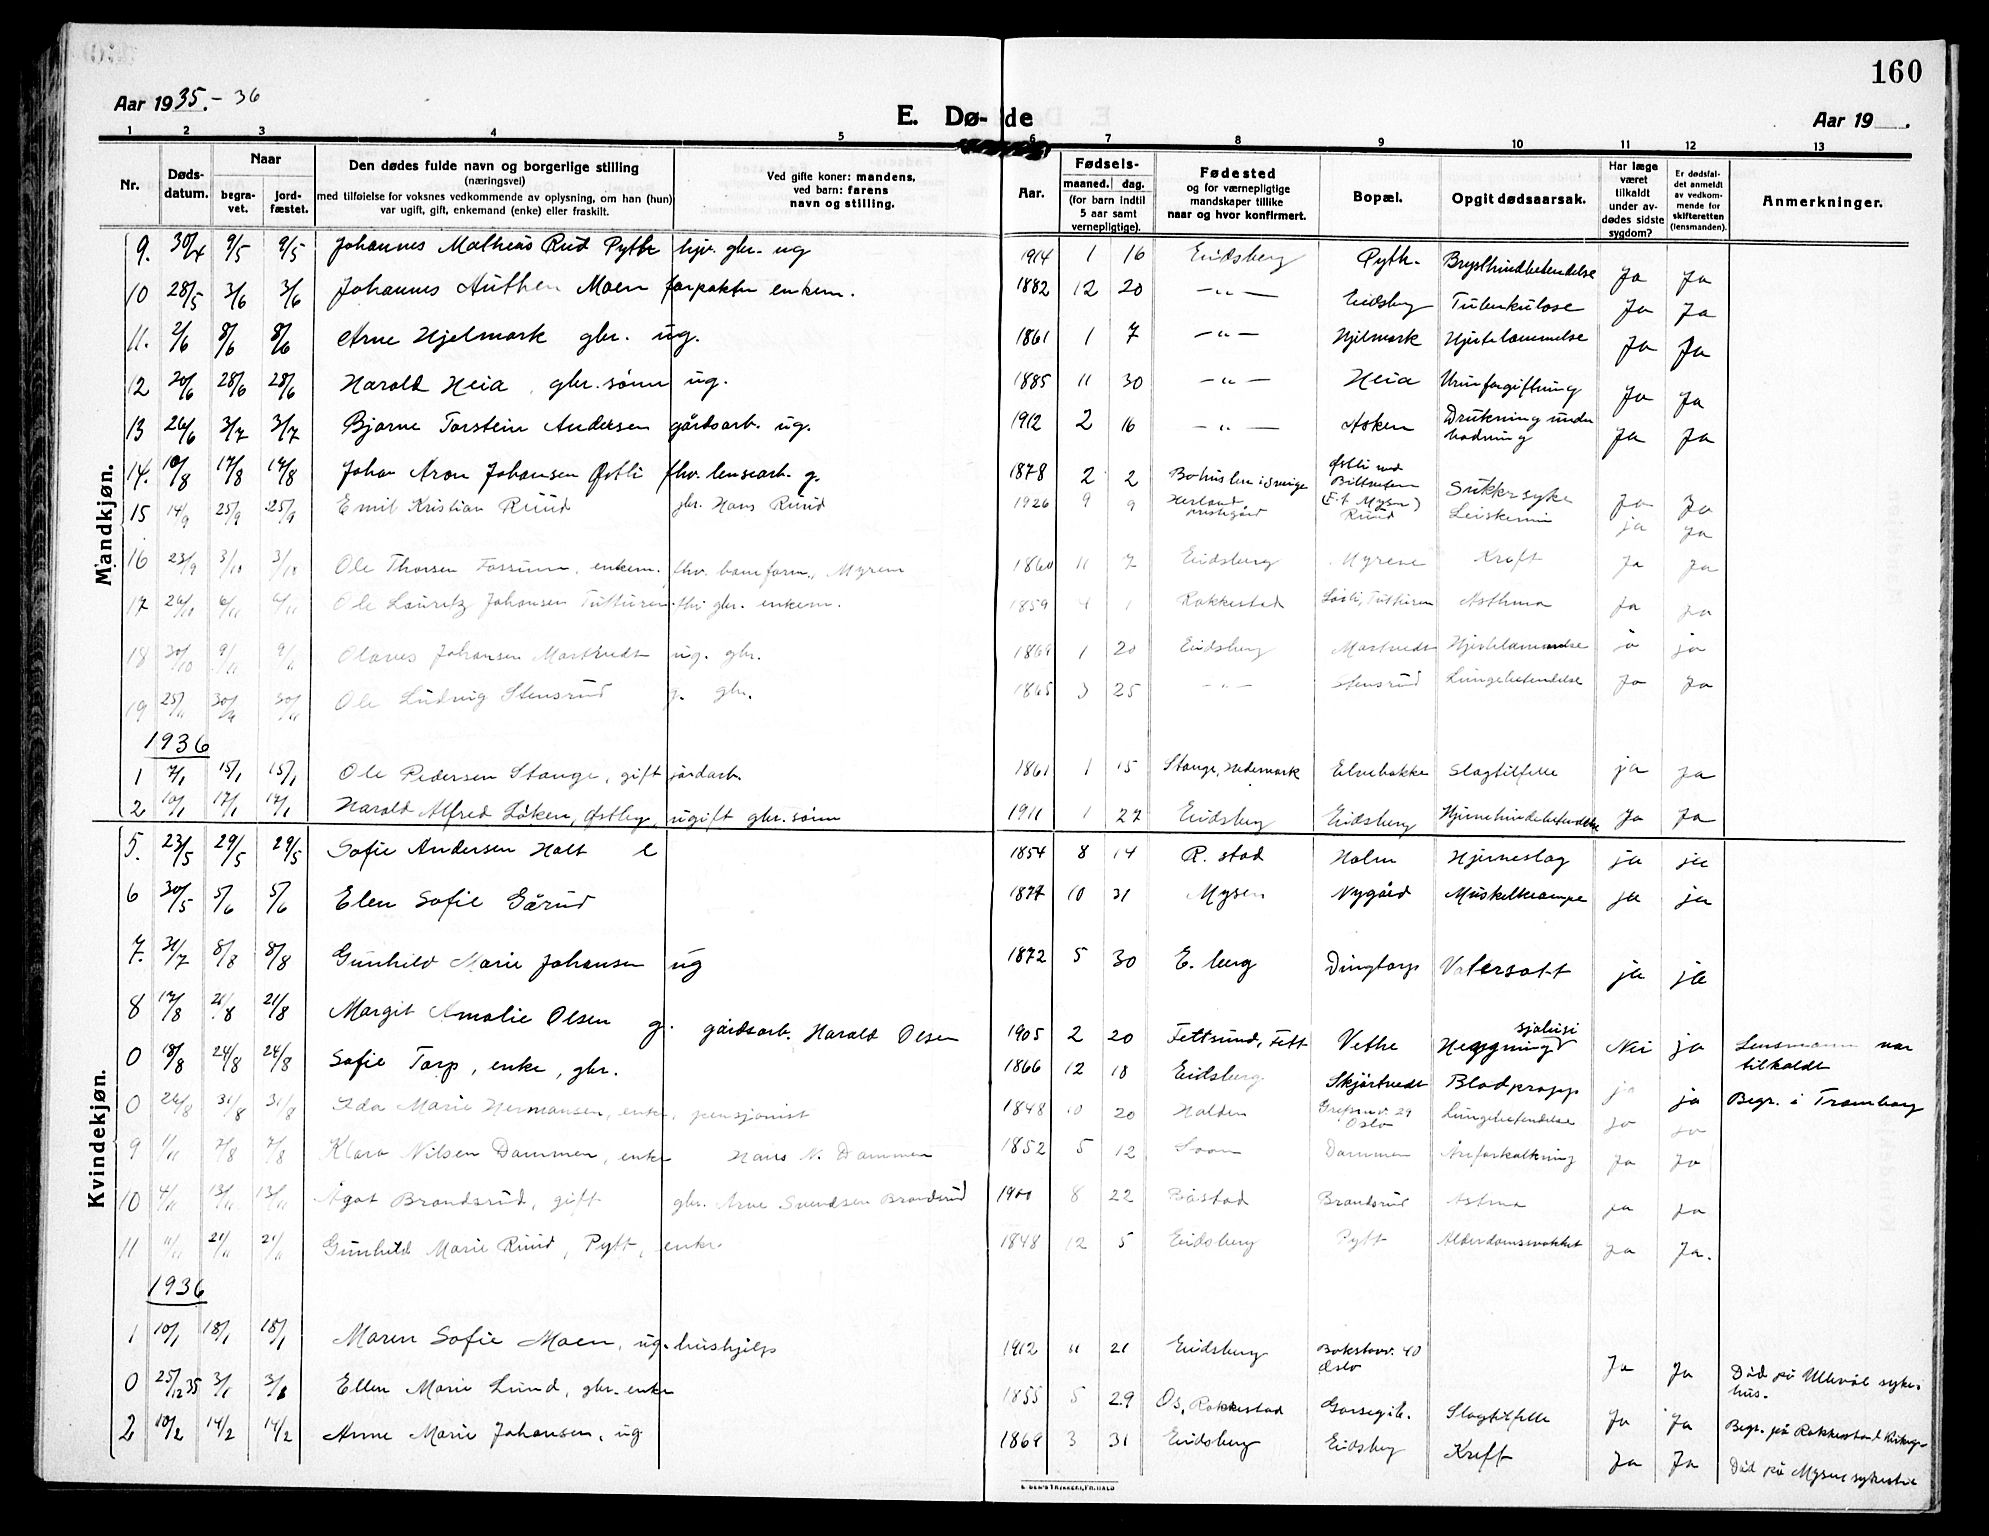 160
Aar 1935.-36
E. Dø- de
Aar 19 .
1 2 3 4 5 6 7 8 9 10 11 12 13
Nr.
Døds-
datum.
Naar
begra-
vet.
jord-
fæstet.
Den dødes fulde navn og borgerlige stilling
(næringsvei)
med tilføielse for voksnes vedkommende av oplysning, om han (hun)
var ugift, gift, enkemand (enke) eller fraskilt.
Ved gifte koner: mandens,
ved barn: farens
navn og stilling.
Aar.
Fødsels-
maaned. dag.
(for barn indtil
5 aar samt
vernepligtige).
Fødested
og for værnepligtige
mandskaper tillike
naar og hvor konfirmert.
Bopæl.
Opgit dødsaarsak.
Har læge
været
tilkaldt
under av-
dødes sidste
sygdom?
Er dødsfal-
det anmeldt
av vedkom-
mende for
skifteretten
(lensmanden).
Anmerkninger.
Mandkjøn.
9. 30/4 9/5 9/5 Johannes Mathias Rud Pytte hjv. gbr. ug 1914 1 16 Eidsberg Pytt. Brysthindebetendelse Ja Ja
10 28/5 3/6 3/6 Johannes Authen Moen forpakter enkem. 1882 12 20 -"- Eidsberg Tuberkulose Ja Ja
11. 2/6 8/6 8/6 Arne Hjelmark gbr. ug. 1861 1 7 -"- Hjelmark Hjertelammelse Ja Ja
12 20/6 28/6 28/6 Harald Heia, gbr. sønn ug. 1885 11 30 -"- Heia Urinforgiftning Ja Ja
13 26/6 3/7 3/7 Bjarne Torstein Andersen gårdsarb. ug. 1912 2 16 -"- Asken Drukning under
badning Ja Ja
14. 10/8 17/8 17/8 Johan Aron Johansen Østli fhv. lensearb. g. 1878 2 2 Bohuslen i Sverige Østli ved
(F.t. Mysen) Sukkersyke Ja Ja
15 14/9 25/9 25/9 Emil Kristian Ruud gbr. Hans Ruud 1926 9 9 Herland
prestegård Ruud Leukemi ja ja
16 23/9 3/10 3/10 Ole Thorsen Fossum, enkem. fhv. baneform., Myrene 1860 11 7 Eidsberg Myrene Kreft Ja Ja
17 26/10 6/11 6/11 Ole Lauritz Johansen Tutturen fhv gbr. enkem. 1859 4 1 Rakkestad Løsli, Tutturen Asthma Ja Ja
18 30/10 9/11 9/11 Olaves Johansen Mortvedt ug. gbr. 1 20 Eidsberg Mortvedt Hjertelammelse ja ja
19 25/11 30/11 30/11 Ole Ludvig Stensrud g. gbr. 1865 3 25 -"- Stensrud Lungebetendelse Ja Ja
1936
1 7/1 15/1 15/1 Ole Pedersen Stange, gift jordarb. 1861 1 15 Stange, Hedemark Elvebakke Slagtilfelle ja ja
2 10/1 17/1 17/1 Harald Alfred Løken, Østby, ugift gbr. sønn 1911 1 27 Eidsberg Eidsberg Hjernehindebetendelse Ja Ja
Kvindekjøn.
5. 23/5 29/5 29/5 Sofie Andersen Holt e 1854 8 14 R. stad Holm Hjerneslag ja ja
6 30/5 5/6 5/6 Elen Sofie Gårud 1877 10 31 Mysen Nygård Muskelkrampe ja ja
7. 31/7 8/8 8/8 Gunhild Marie Johansen ug 1872 5 30 E. berg Dingtorp Vatersott ja ja
8 17/8 21/8 21/8 Margit Amalie Olsen g. gårdsarb. Harald Olsen 1905 2 20 Fettsund, Fett Vethe Hengning Nei ja Lensmann var
tilkaldt
0 18/8 24/8 24/8 Sofie Torp, enke, gbr. 1866 12 18 Eidsberg Skjørtvedt Blodpropp ja ja Begr. i Tromborg
0 26/8 31/8 31/8 Ida Marie Hermansen, enke, pensjonist 1848 10 20 Halden Grefsenv. 29
Oslo Lungebetendelse ja ja
9 1/11 7/8 7/8 Klara Nilsen Dammen, enke Hans N. Dammen 1852 5 12 Soon Dammen Åreforkalkning Ja Ja
10 4/11 13/11 13/11 Ågot Brandsrud, gift gbr. Arne Svendsen Brandsrud 1900 8 22 Båstad Brandsrud Astma ja ja
11 11/11 21/11 21/11 Gunhild Marie Ruud, Pytt, enke. 1848 12 5 Eidsberg Pytt Alderdomssvakhet ja Ja.
1936
1 10/1 18/1 18/1 Maren Sofie Moen, ug. hushjelp 1912 11 21 Eidsberg Bokstadv. 40
Oslo Ja Ja Død på Ullevål syke-
hus.
0 25/12 35 3/1 3/1 Ellen Marie Lund, gbr. enke 1855 5 29 Os, Rakkestad Slagtilfelle Ja Ja Begr. på Rakkestad Kirkeg.
2 10/2 14/2 14/2 Anne Marie Johansen, ug. 1869 3 31 Eidsberg Eidsberg Kreft Ja Ja Død på Mysen sykestue